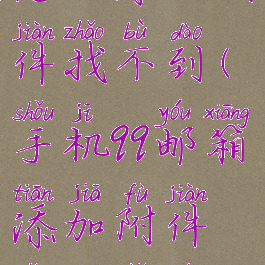 jiàn zhǎo bù dào
件找不到(
shǒu jī yóu xiāng
手机99邮箱
tiān jiā fù jiàn
添加附件